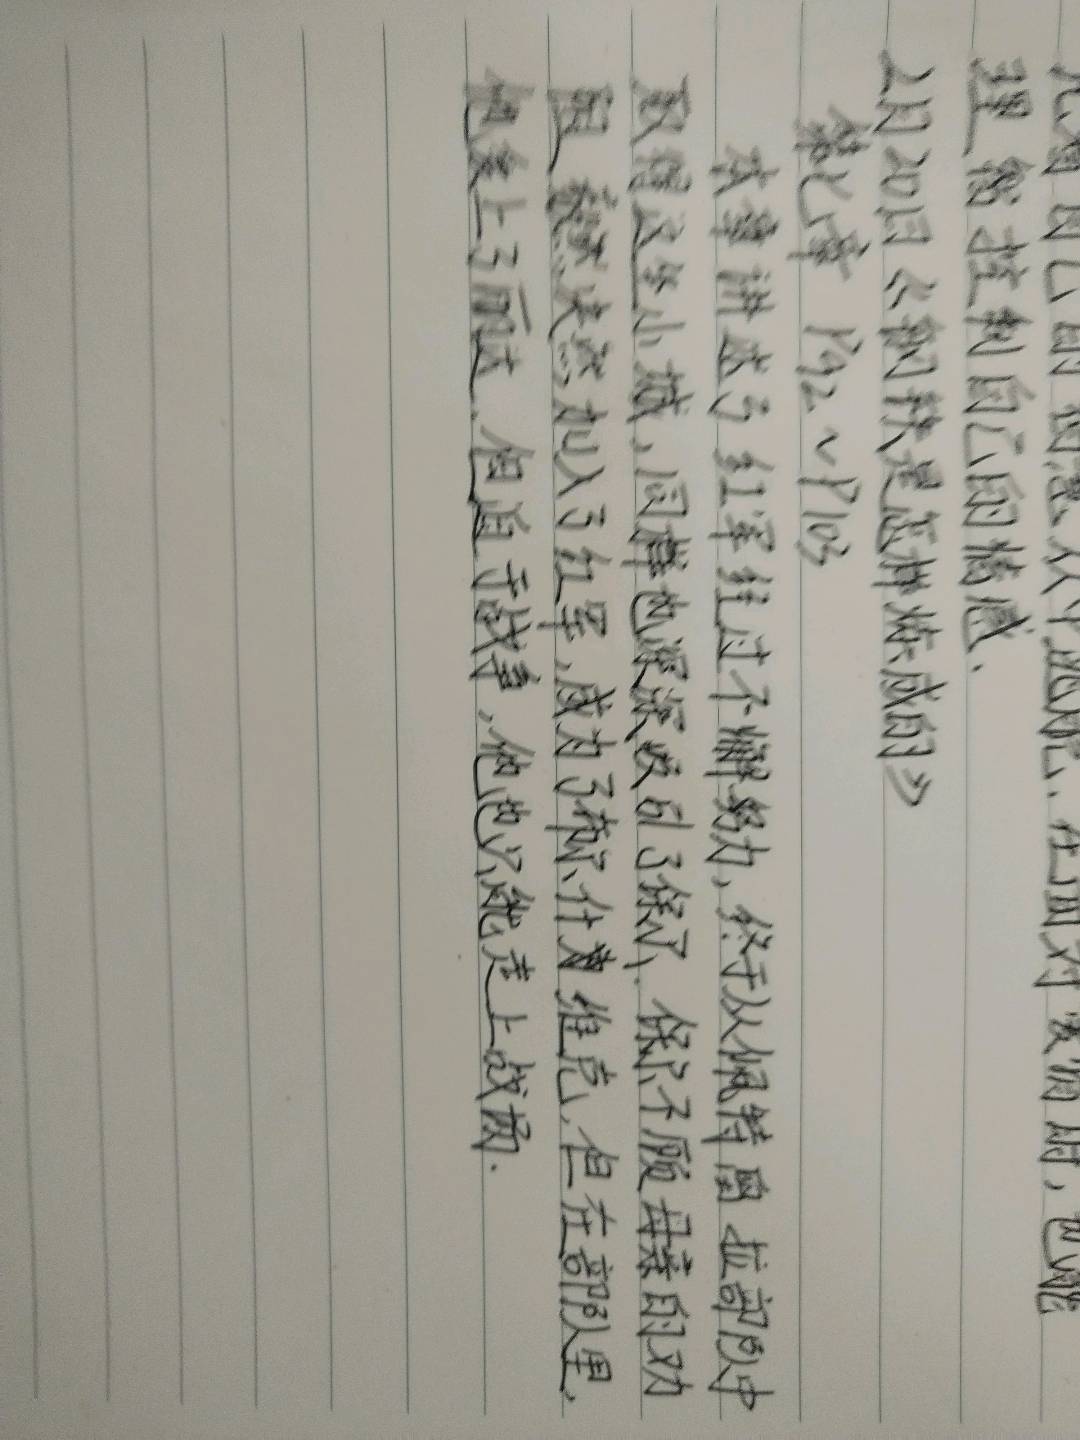 自己的
理智控制自己的情感.
2月20日《钢铁是怎样炼成的》
第七章 P92~P103
本章讲述了红军经过不懈努力,终于从佩特留拉部队中
取得这坐小城,同样也深深吸引了保尔、保尔不顾母亲的劝
阻毅然决然加入了红军,成为了布尔什为维克,但在部队里,
他爱上了丽达.但迫于战争,他也只能走上战场.